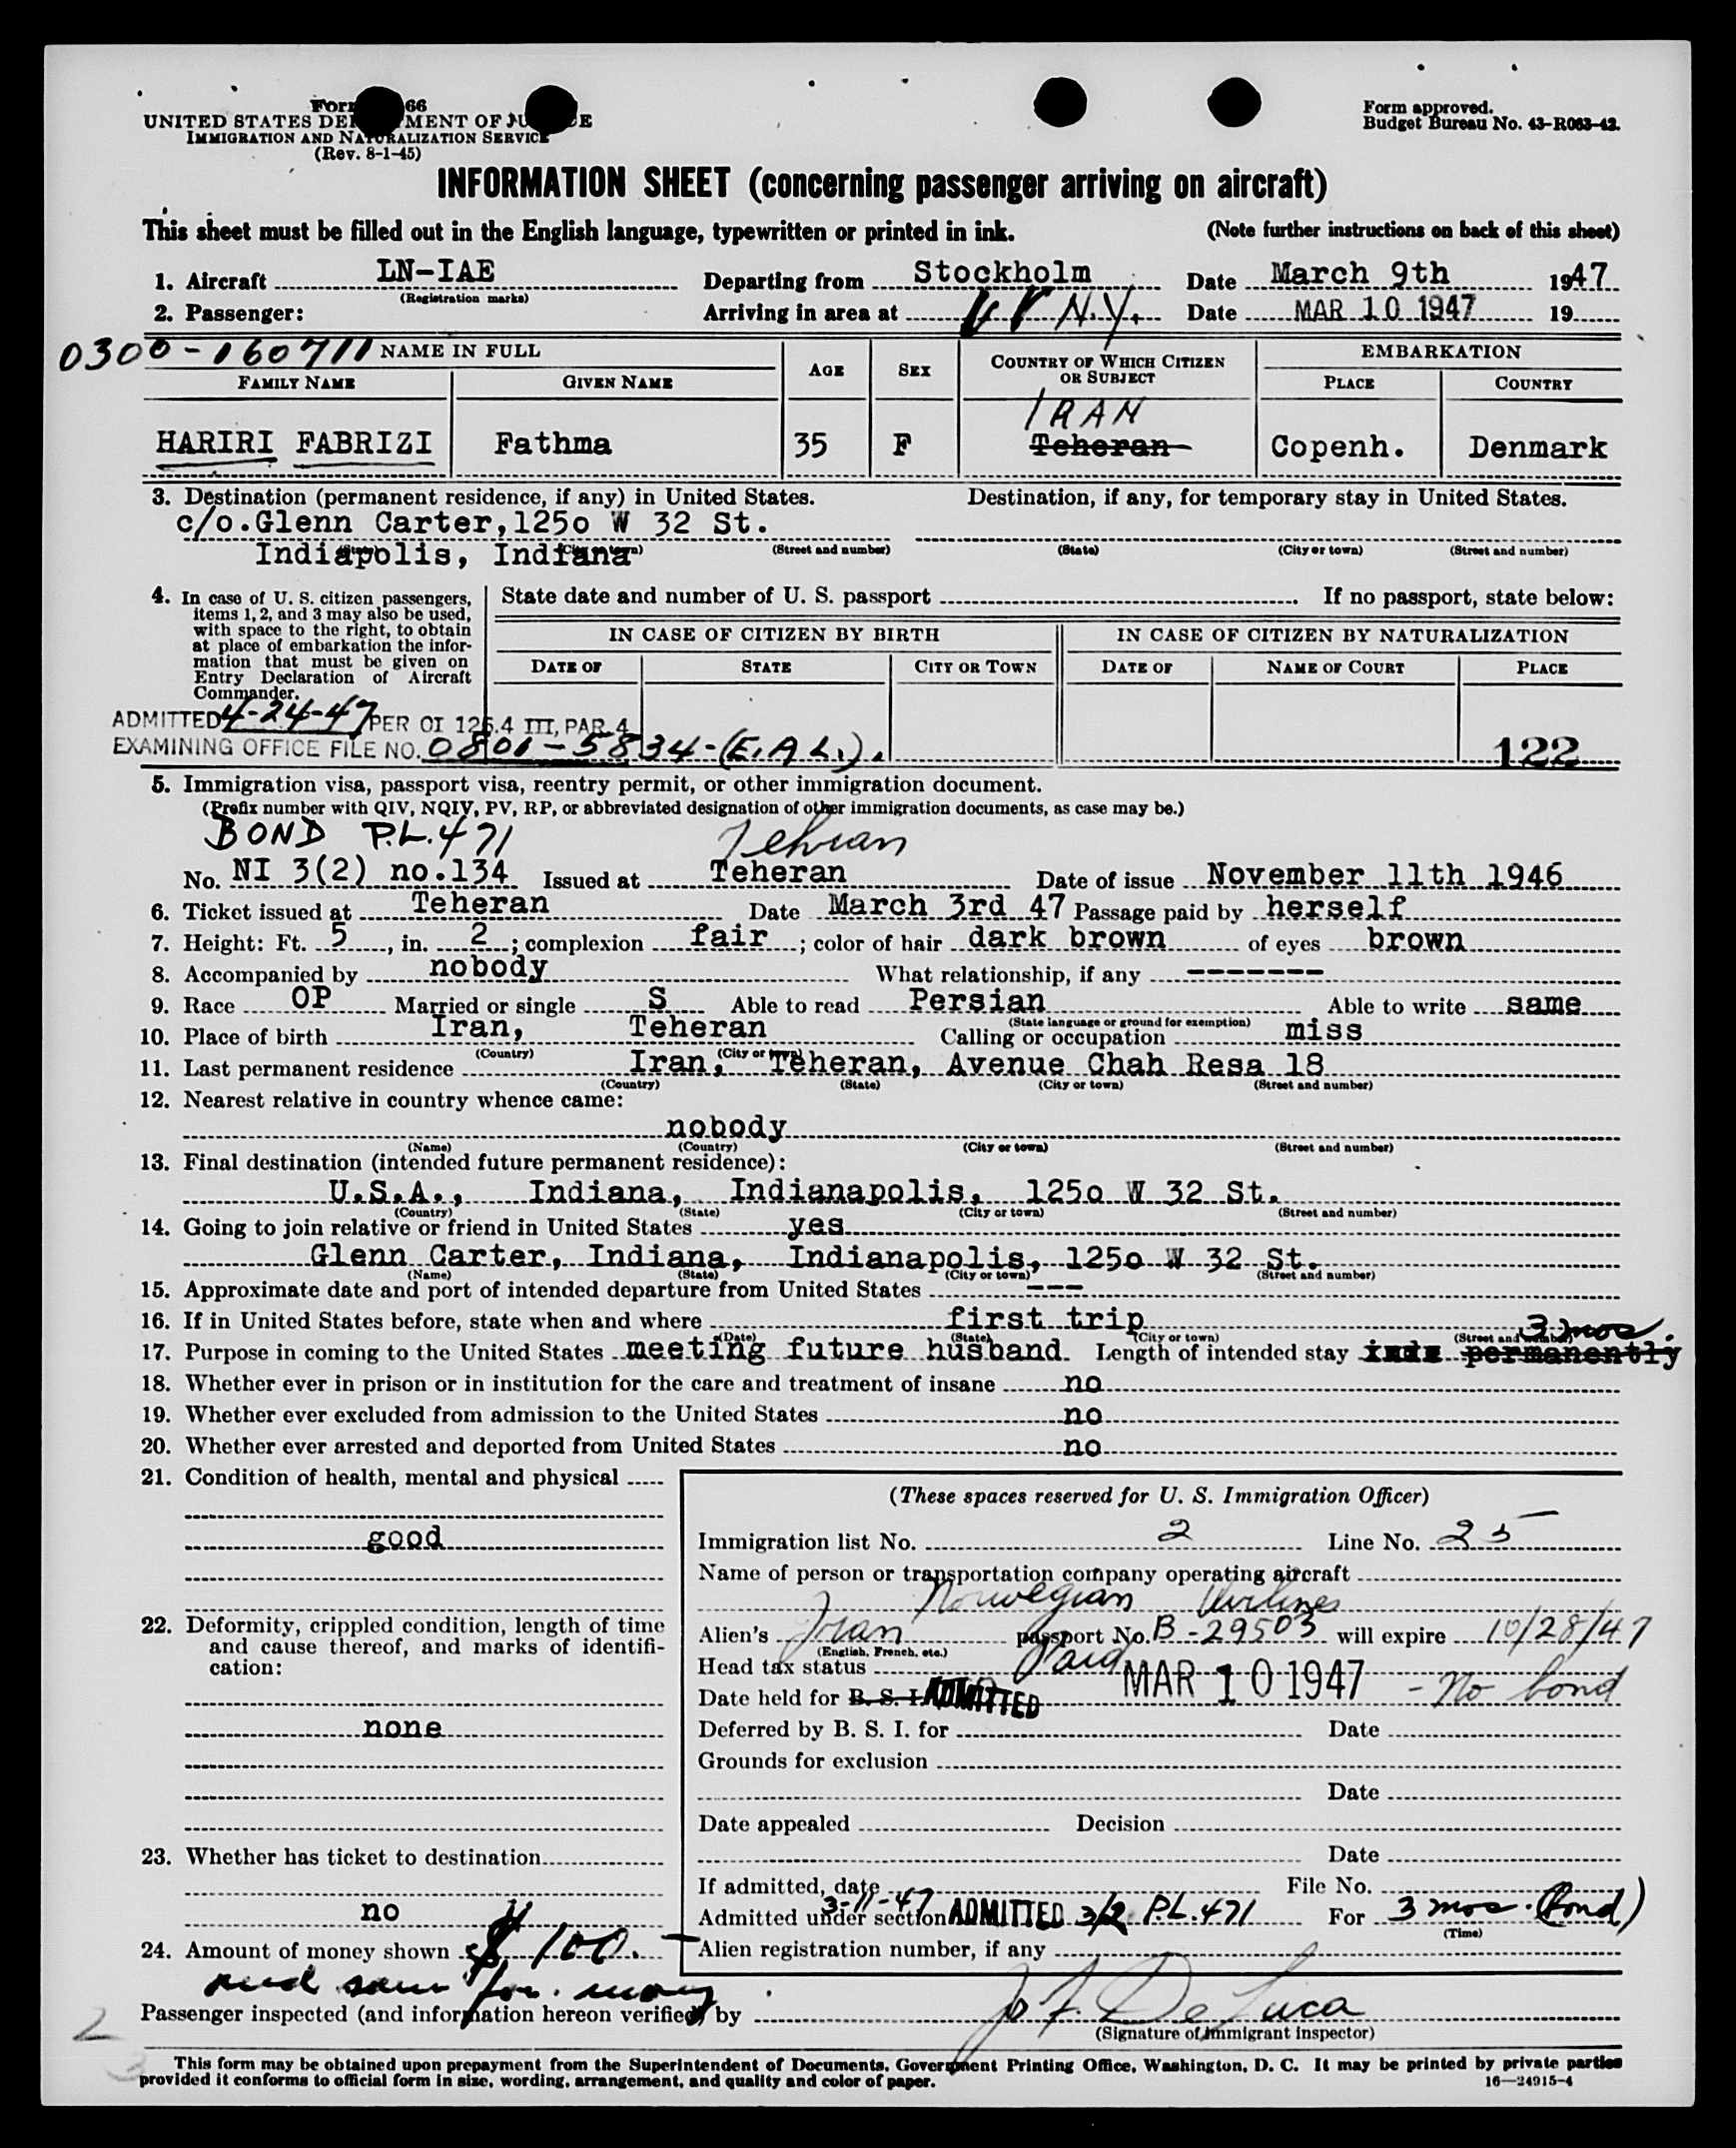 Form 66
UNITED STATES DEPARTMENT OF JUSTICE
IMMIGRATION AND NATURALIZATION SERVICE
(Rev. 8-1-45)
Form approved.
Budget Bureau No. 43-R063-42.
INFORMATION SHEET (concerning passenger arriving on aircraft)
This sheet must be filled out in the English language, typewritten or printed in ink. (Note further instructions on back of this sheet)
1. Aircraft LN-IAE Departing from Stockholm Date March 9th 1947
(Registration marks)
2. Passenger: Arriving in area at N.Y. Date MAR 10 1947 19
0300-160711 NAME IN FULL AGE SEX COUNTRY OF WHICH CITIZEN OR SUBJECT EMBARKATION
FAMILY NAME GIVEN NAME PLACE COUNTRY
IRAN
HARIRI FABRIZI Fathma 35 F Teheran Copenh. Denmark
3. Destination (permanent residence, if any) in United States. Destination, if any, for temporary stay in United States.
c/o.Glenn Carter,125o W 32 St.
Indiapolis, Indiana
(State) (City or town) (Street and number) (State) (City or town) (Street and number)
4. In case of U. S. citizen passengers, items 1, 2, and 3 may also be used, with space to the right, to obtain at place of embarkation the information that must be given on Entry Declaration of Aircraft Commander.
State date and number of U. S. passport If no passport, state below:
IN CASE OF CITIZEN BY BIRTH IN CASE OF CITIZEN BY NATURALIZATION
DATE OF STATE CITY OR TOWN DATE OF NAME OF COURT PLACE
ADMITTED 4-24-47 PER OI 126.4 III, PAR 4
EXAMINING OFFICE FILE NO. 0801-5834-(E.A.L.). 122
5. Immigration visa, passport visa, reentry permit, or other immigration document.
(Prefix number with QIV, NQIV, PV, RP, or abbreviated designation of other immigration documents, as case may be.)
BOND P.L.471 Tehran
No. NI 3(2) no.134 Issued at Teheran Date of issue November 11th 1946
6. Ticket issued at Teheran Date March 3rd 47 Passage paid by herself
7. Height: Ft. 5, in. 2; complexion fair; color of hair dark brown of eyes brown
8. Accompanied by nobody What relationship, if any -------
9. Race OP Married or single S Able to read Persian Able to write same
(State language or ground for exemption)
10. Place of birth Iran, Teheran Calling or occupation miss
(Country) (City or town)
11. Last permanent residence Iran, Teheran, Avenue Chah Resa 18
(Country) (State) (City or town) (Street and number)
12. Nearest relative in country whence came:
nobody
(Name) (Country) (City or town) (Street and number)
13. Final destination (intended future permanent residence):
U.S.A., Indiana, Indianapolis, 125o W 32 St.
(Country) (State) (City or town) (Street and number)
14. Going to join relative or friend in United States yes
Glenn Carter, Indiana, Indianapolis, 125o W 32 St.
(Name) (State) (City or town) (Street and number)
15. Approximate date and port of intended departure from United States ---
16. If in United States before, state when and where first trip
(Date) (State) (City or town) (Street and number) 3 mos.
17. Purpose in coming to the United States meeting future husband Length of intended stay permanently
18. Whether ever in prison or in institution for the care and treatment of insane no
19. Whether ever excluded from admission to the United States no
20. Whether ever arrested and deported from United States no
21. Condition of health, mental and physical
good
22. Deformity, crippled condition, length of time and cause thereof, and marks of identification:
none
23. Whether has ticket to destination
no
24. Amount of money shown $100.
(These spaces reserved for U. S. Immigration Officer)
Immigration list No. 2 Line No. 25
Name of person or transportation company operating aircraft
Norwegian Airlines
Alien's Iran passport No. B-29503 will expire 10/28/47
(English, French, etc.)
Head tax status Paid
Date held for B. S. I. ADMITTED MAR 10 1947 - No bond
Deferred by B. S. I. for Date
Grounds for exclusion
Date
Date appealed Decision
Date
If admitted, date 3-11-47 File No.
Admitted under section ADMITTED 3/2 P.L.471 For 3 mos. (Bond)
(Time)
Alien registration number, if any
Passenger inspected (and information hereon verified) by J. F. DeLuca
(Signature of Immigrant Inspector)
This form may be obtained upon prepayment from the Superintendent of Documents, Government Printing Office, Washington, D. C. It may be printed by private parties
provided it conforms to official form in size, wording, arrangement, and quality and color of paper. 16—24915-4